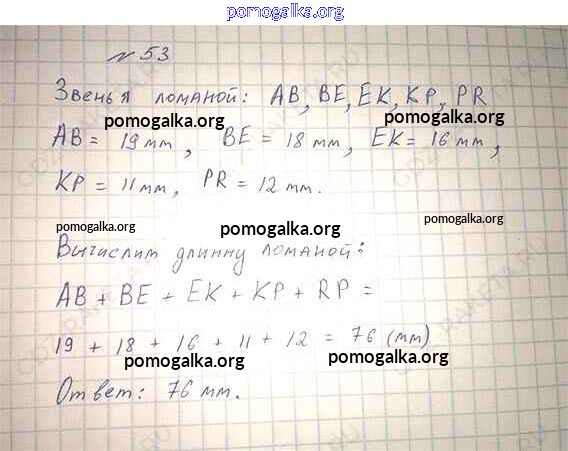 pomogalka.org
№ 53
Звенья ломаной: AB, BE, EK, KP, PR
pomogalka.org pomogalka.org
AB = 19 мм, BE = 18 мм, EK = 16 мм,
KP = 11 мм, PR = 12 мм.
pomogalka.org pomogalka.org pomogalka.org
Вычислим длинну ломаной:
AB + BE + EK + KP + RP =
19 + 18 + 16 + 11 + 12 = 76 (мм)
pomogalka.org pomogalka.org
Ответ: 76 мм.